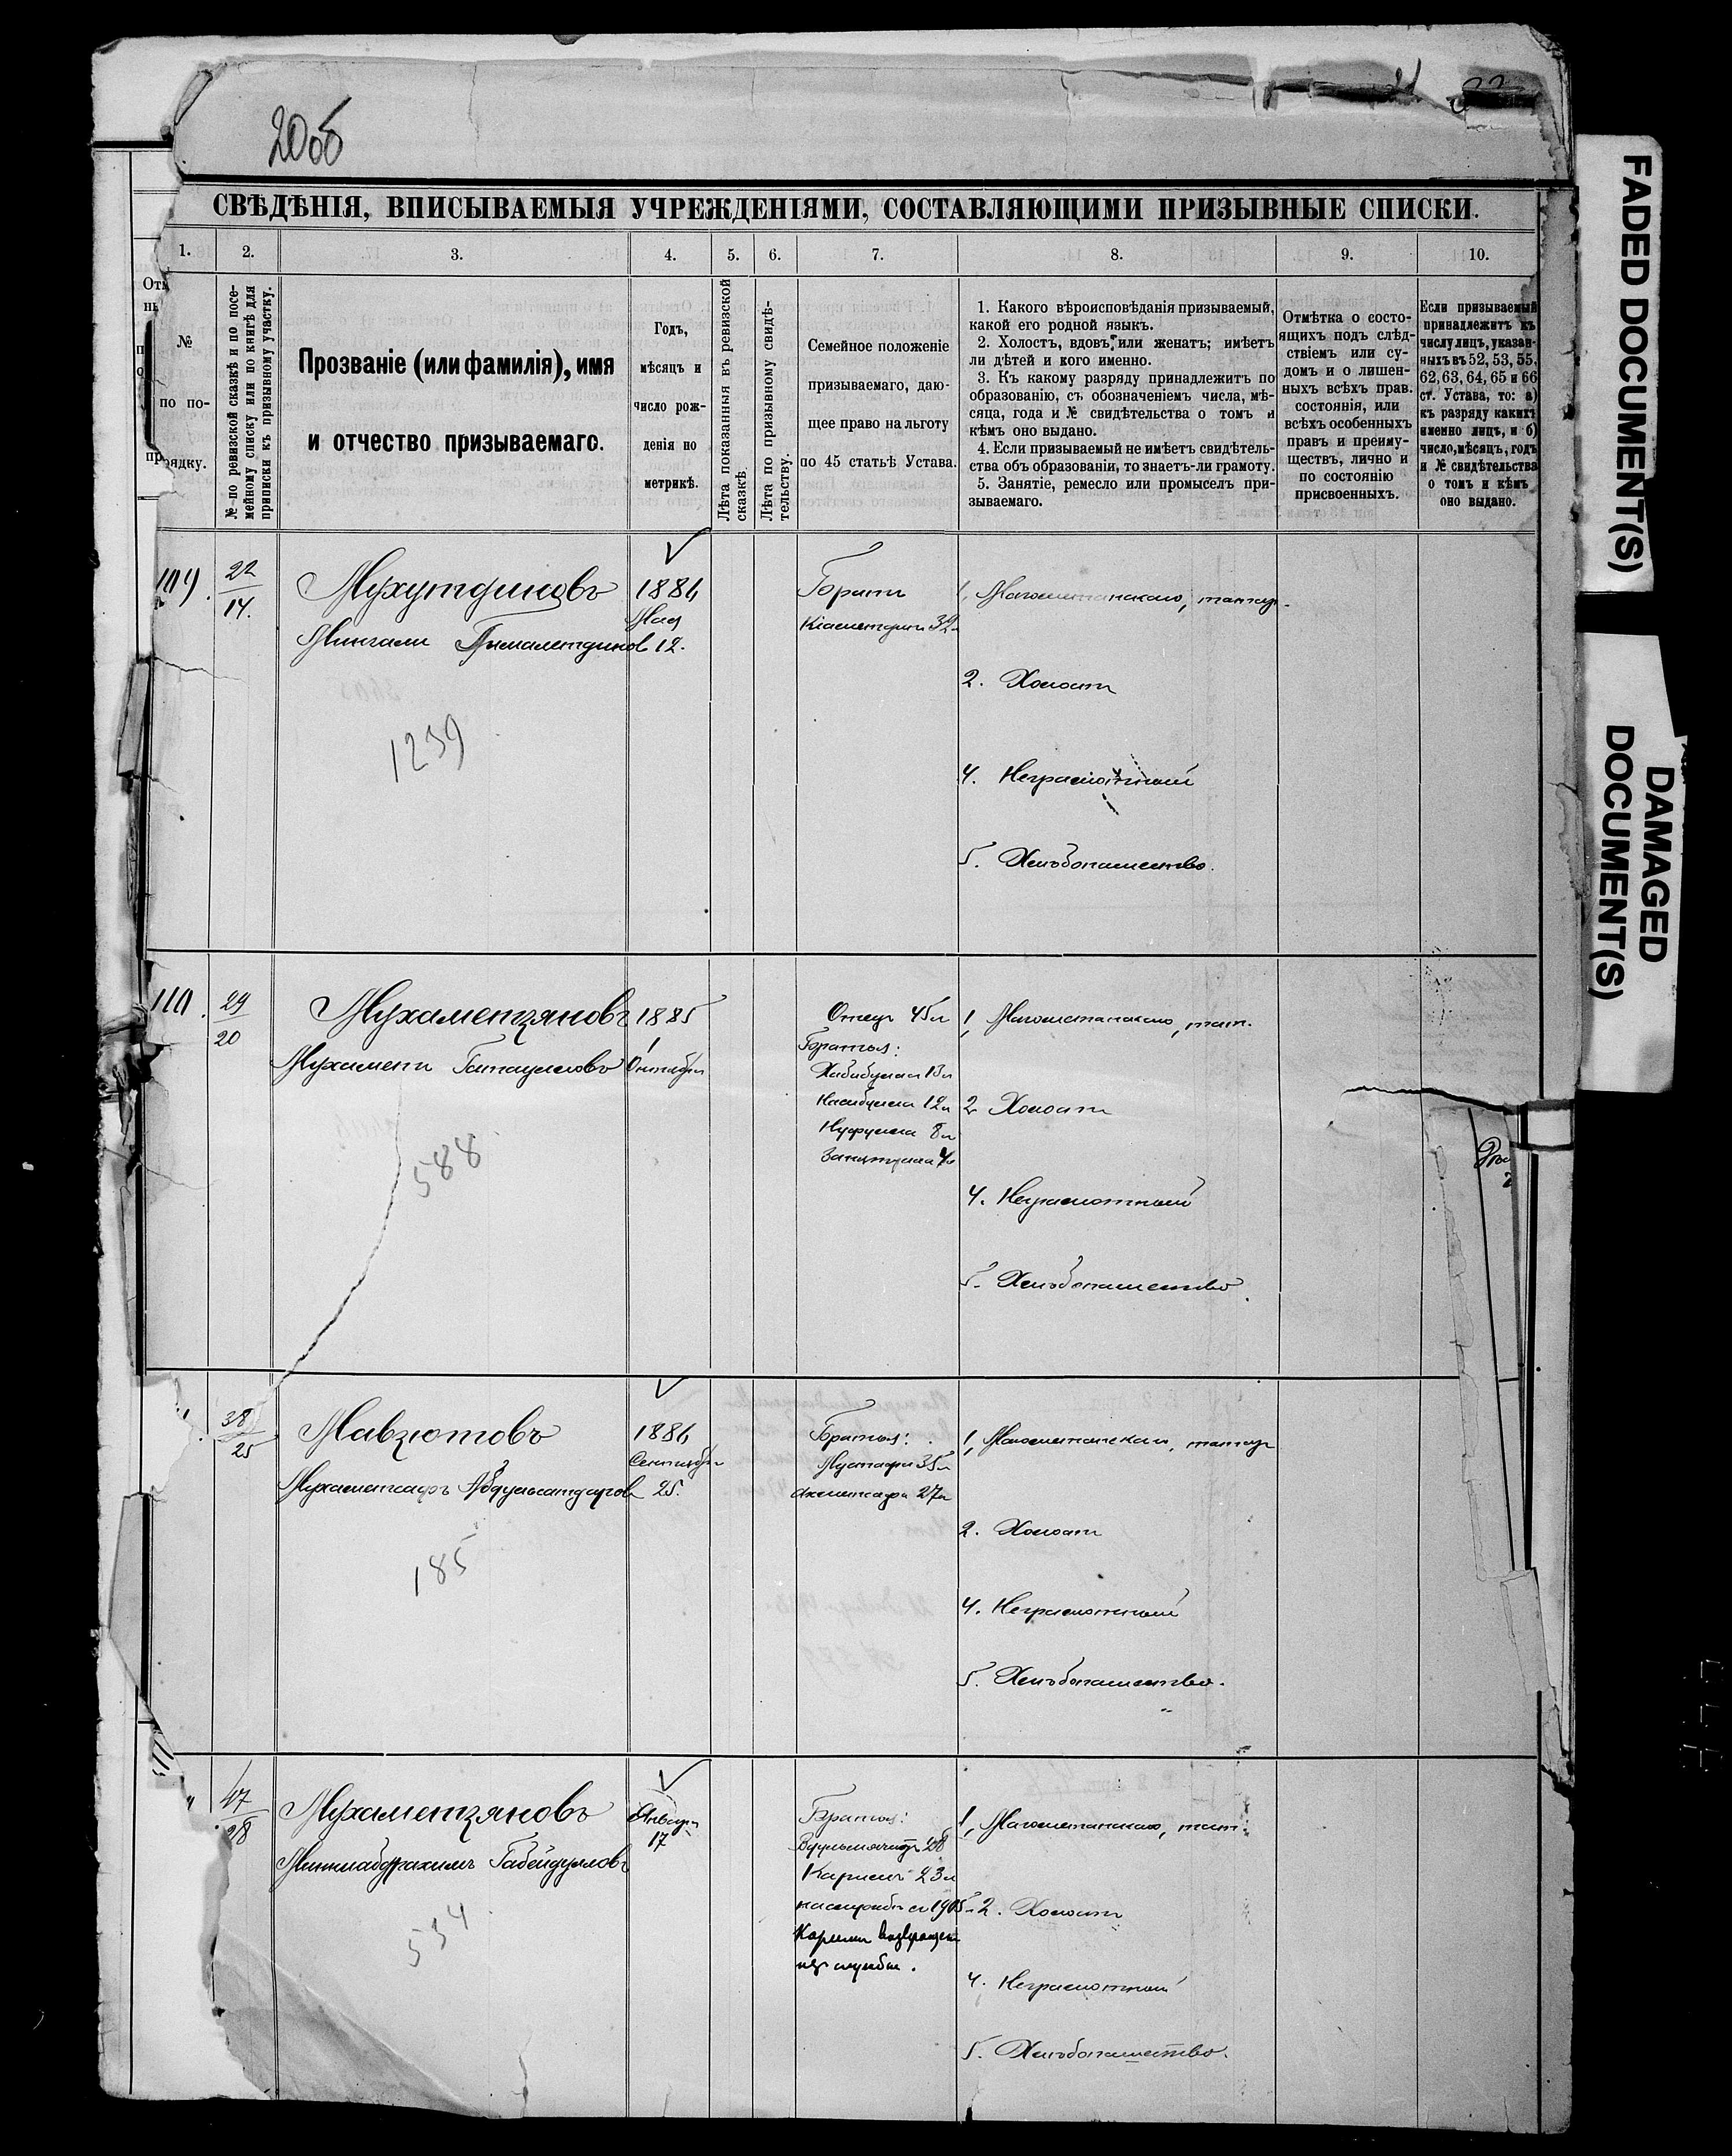 20об
СВѢДѢНІЯ, ВПИСЫВАЕМЫЯ УЧРЕЖДЕНІЯМИ, СОСТАВЛЯЮЩИМИ ПРИЗЫВНЫЕ СПИСКИ.
1. 2. 3. 4. 5. 6. 7. 8. 9. 10.
№
по по-
рядку.
№ по ревизской сказкѣ и по посе-
мейному списку или по книгѣ для
приписки къ призывному участку.
Прозваніе (или фамилія), имя
и отчество призываемаго.
Годъ,
мѣсяцъ и
число рож-
денія по
метрикѣ.
Лѣта показанныя въ ревизской
сказкѣ.
Лѣта по призывному свидѣ-
тельству.
Семейное положеніе
призываемаго, даю-
щее право на льготу
по 45 статьѣ Устава.
1. Какого вѣроисповѣданія призываемый,
какой его родной языкъ.
2. Холостъ, вдовъ, или женатъ; имѣетъ
ли дѣтей и кого именно.
3. Къ какому разряду принадлежитъ по
образованію, съ обозначеніемъ числа, мѣ-
сяца, года и № свидѣтельства о томъ и
кѣмъ оно выдано.
4. Если призываемый не имѣетъ свидѣтель-
ства объ образованіи, то знаетъ-ли грамоту.
5. Занятіе, ремесло или промыселъ при-
зываемаго.
Отмѣтка о состо-
ящихъ подъ слѣд-
ствіемъ или су-
домъ и о лишен-
ныхъ всѣхъ прав.
состоянія, или
всѣхъ особенныхъ
правъ и преиму-
ществъ, лично и
по состоянію
присвоенныхъ.
Если призываемый
принадлежитъ къ
числу лицъ, указан-
ныхъ въ 52, 53, 55,
62, 63, 64, 65 и 66
ст. Устава, то: а)
къ разряду какихъ
именно лицъ, и б)
число, мѣсяцъ, годъ
и № свидѣтельства
о томъ и кѣмъ
оно выдано.
109.
22
14.
Мухутдиновъ
Мингали
1239
1886
Мая
12.
Братъ
32л
1, Магометанскаго, татар.
2. Холостъ
4. Неграмотный
5. Хлѣбопашество.
110.
29
20
Мухаметзяновъ
Мухаметъ Гатаулловъ
588
1885
1
Октября
Отецъ 45л
Братья:
Хабибулла 13л
Насибулла 12л
8л
1, Магометанскаго, тат.
2 Холостъ
4. Неграмотный
5. Хлѣбопашество.
38
25
Мавзютовъ
185
1886
Сентября
25.
Братья:
Мустафа 35л
27л
1, Магометанскаго, татар
2. Холостъ
4. Неграмотный
5. Хлѣбопашество.
47
28
Мухаметзяновъ
Миннабдрахимъ Габейдулловъ
534
Января
17
Братья:
Каримъ 23л
на службѣ съ 1905
Каримъ возвращенъ
изъ службы.
1, Магометанскаго, тат.
2. Холостъ
4. Неграмотный
5. Хлѣбопашество.
FADED DOCUMENT(S)
DAMAGED
DOCUMENT(S)